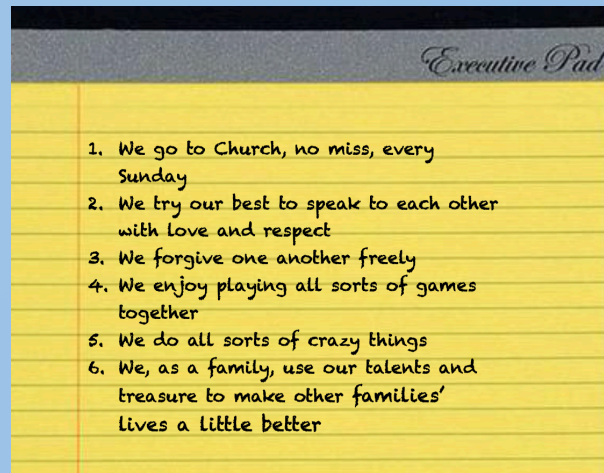 Executive Pad
1. We go to Church, no miss, every
Sunday
2. We try our best to speak to each other
with love and respect
3. We forgive one another freely
4. We enjoy playing all sorts of games
together
5. We do all sorts of crazy things
6. We, as a family, use our talents and
treasure to make other families'
lives a little better